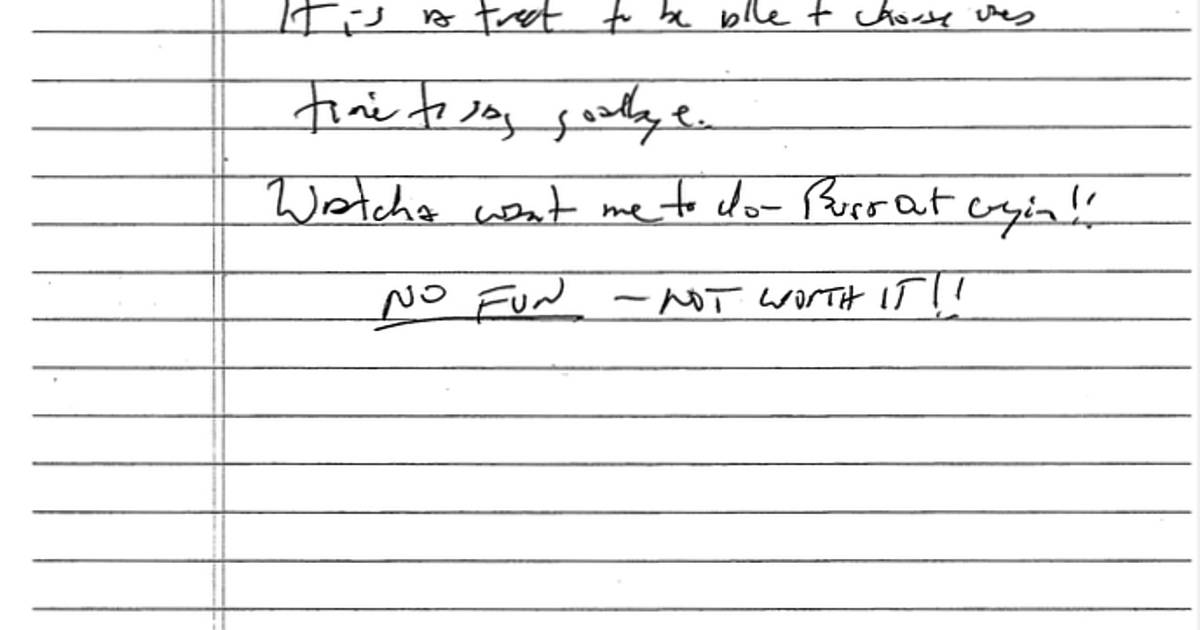 It is a treat to be able to choose ones
time to say goodbye.
Watcha want me to do - Burst out cryin!!
NO FUN - NOT WORTH IT!!